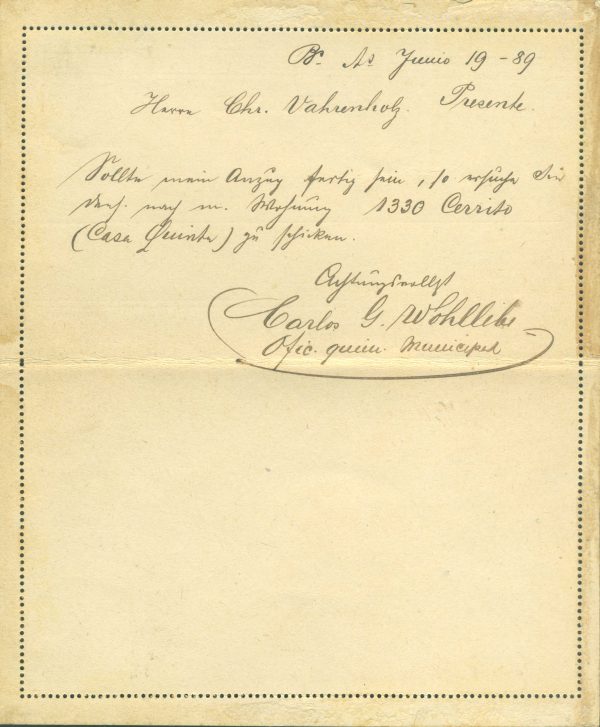 Bs. As Junio 19 - 89
Herrn Chr. Vahrenholz. Presente.
Sollte mein Anzug fertig sein, so ersuche Sie
dens. nach m. Wohnung 1330 Cerrito
(Casa Quinta) zu schicken.
Achtungsvollst
Carlos G. Wohllebe
Ofic. quim. Municipal